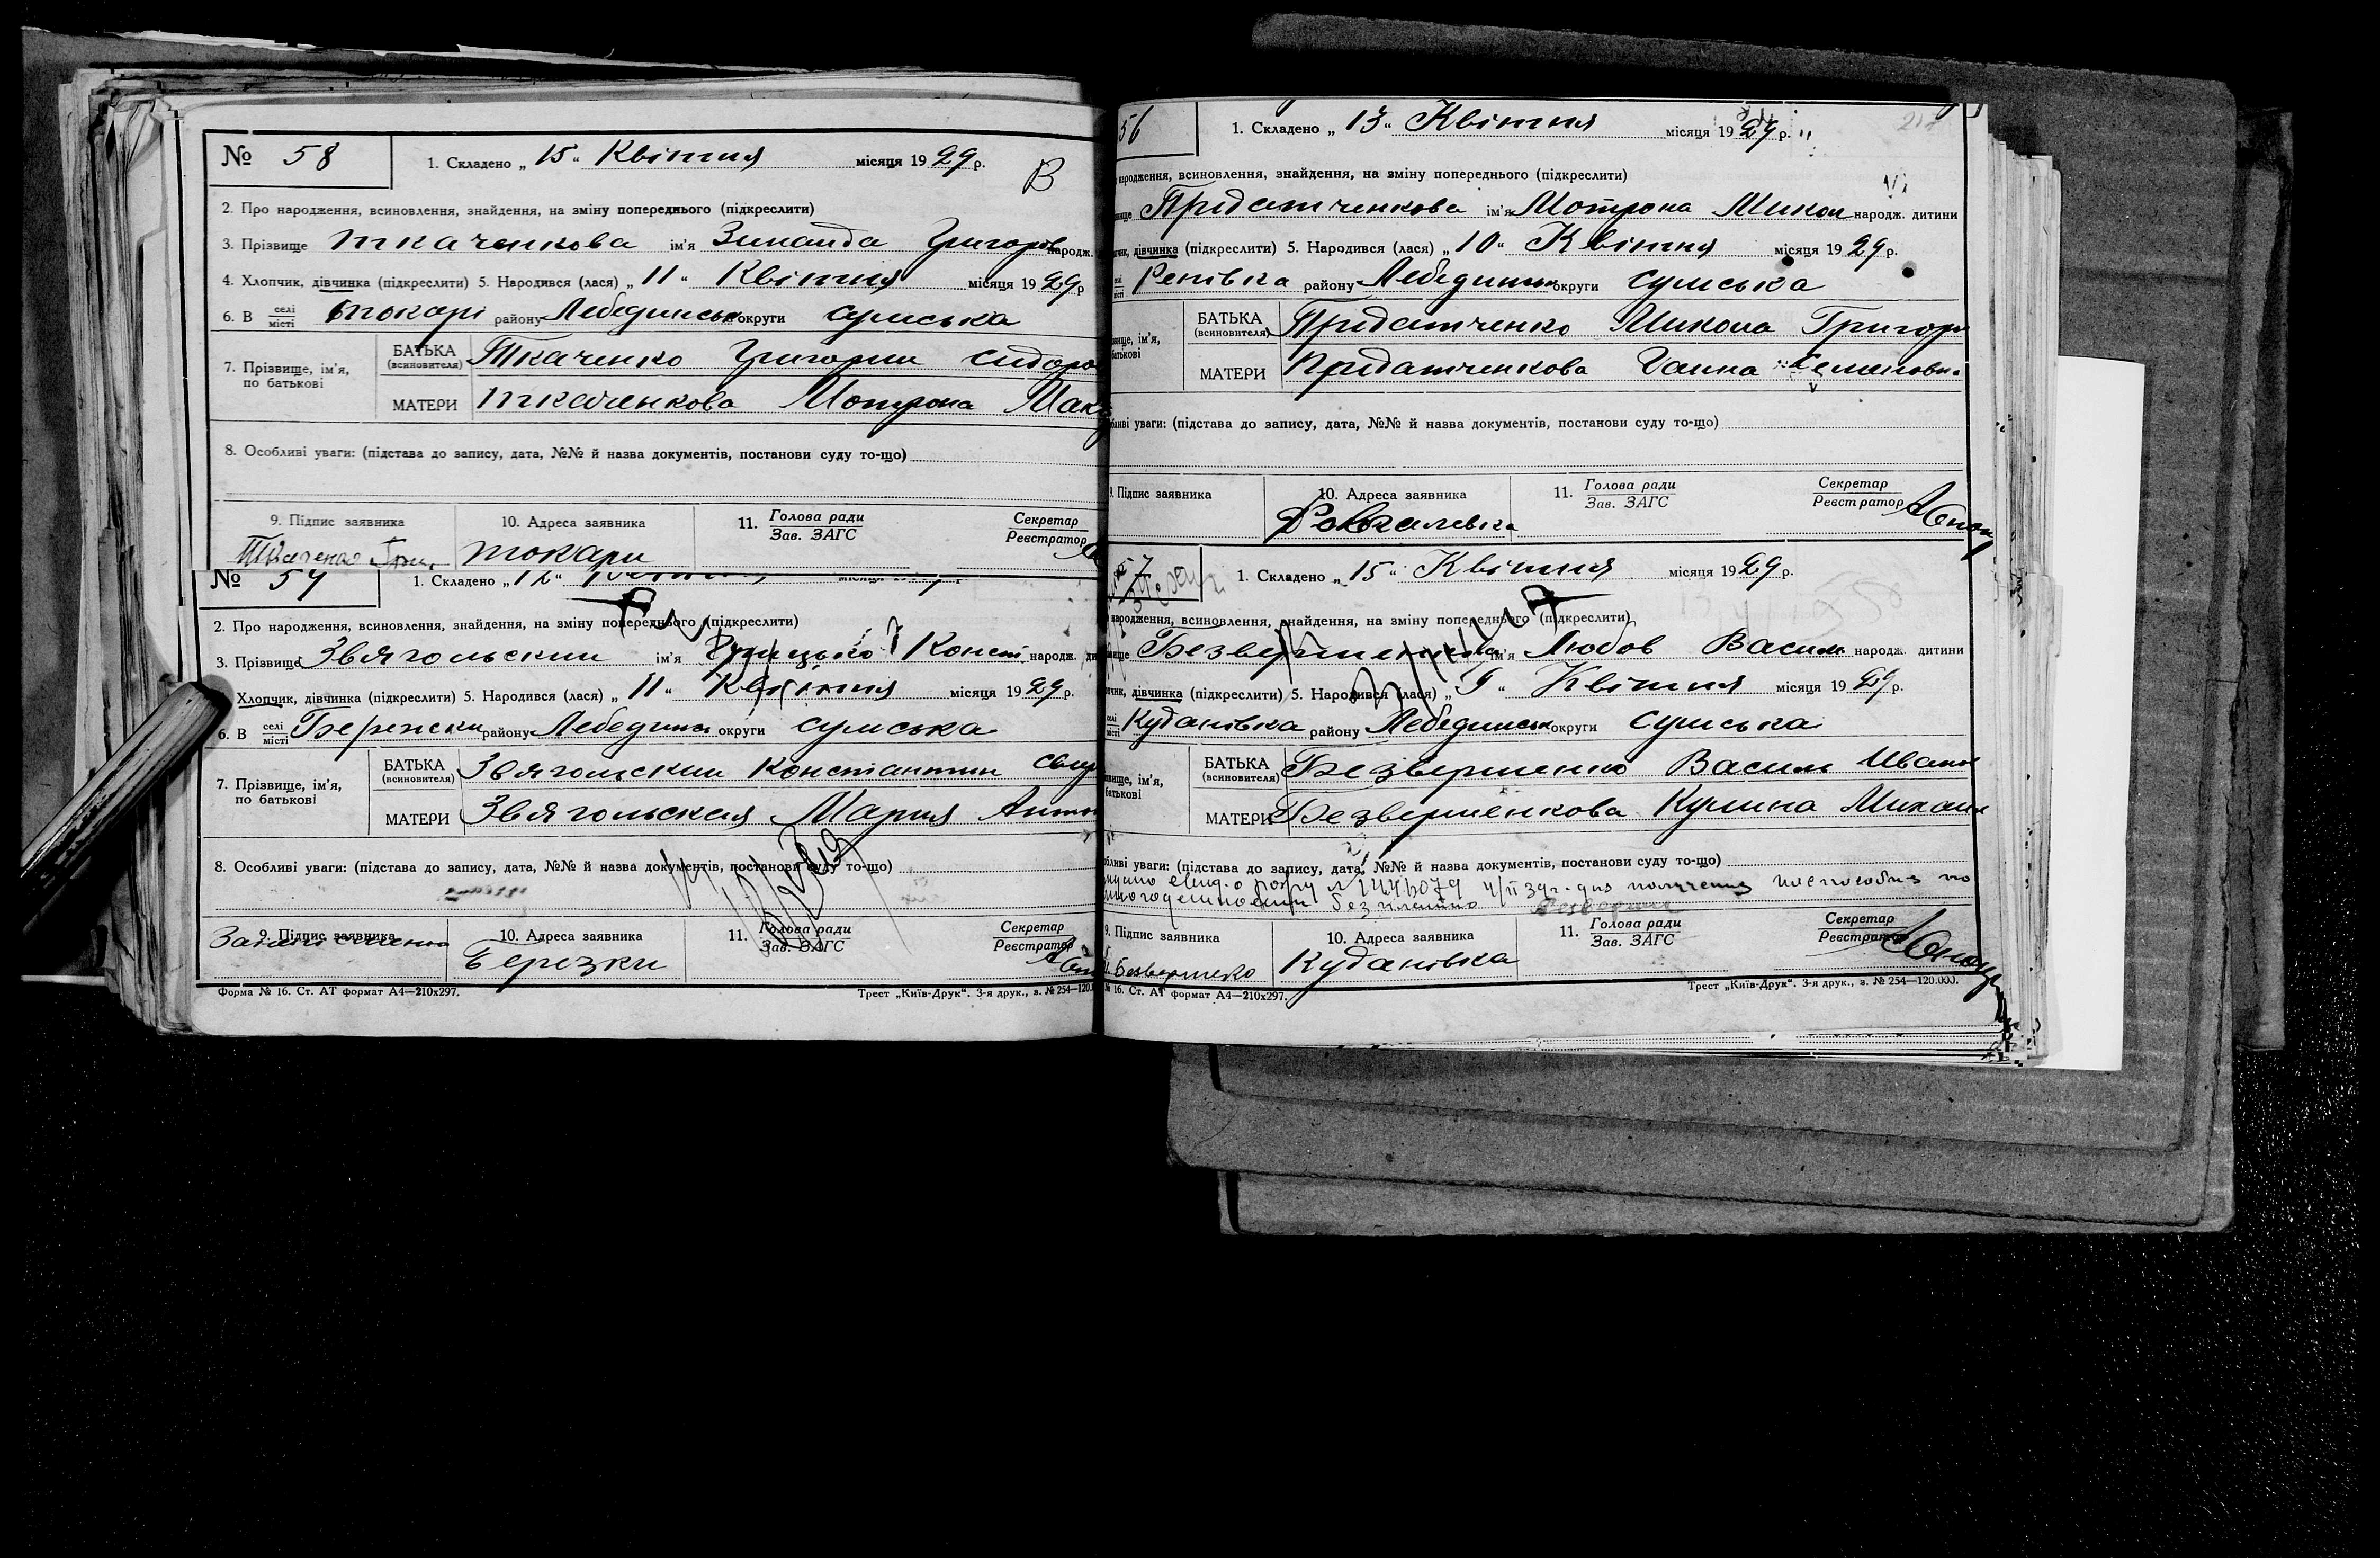 № 58
1. Складено „ 15 “ Квітня місяця 19 29 р.
В
2. Про народження, всиновлення, знайдення, на зміну попереднього (підкреслити)
3. Прізвище Ткаченкова ім'я Зинаида Григоров народж.
4. Хлопчик, дівчинка (підкреслити) 5. Народився (лася) „ 11 “ Квітня місяця 19 29 р
6. В селі місті Токарі району Лебединськ округи Сумська
7. Прізвище, ім'я, по батькові
БАТЬКА (всиновителя) Ткаченко Григории Сидоро
МАТЕРИ Ткаченкова Мотрона Мак
8. Особливі уваги: (підстава до запису, дата, №№ й назва документів, постанови суду то-що)
9. Підпис заявника 10. Адреса заявника 11. Голова ради Зав. ЗАГС Секретар Реєстратор
Ткаченко Гри. Токари
№ 54
1. Складено „ 12 “
2. Про народження, всиновлення, знайдення, на зміну попереднього (підкреслити)
3. Прізвище Звягольскии ім'я Конст народж.
Хлопчик, дівчинка (підкреслити) 5. Народився (лася) „ 11 “ Квітня місяця 19 29 р.
6. В селі місті Бережки району Лебединс округи Сумська
7. Прізвище, ім'я, по батькові
БАТЬКА (всиновителя) Звягольскии Константин
МАТЕРИ Звягольская Мария Антон
8. Особливі уваги: (підстава до запису, дата, №№ й назва документів, постанови суду то-що)
9. Підпис заявника 10. Адреса заявника 11. Голова ради Зав. ЗАГС Секретар Реєстратор
Березки
Форма № 16. Ст. АТ формат А4—210x297. Трест „Київ-Друк“. 3-я друк., з. № 254—120.0
56
1. Складено „ 13 “ Квітня місяця 19 29 р.
народження, всиновлення, знайдення, на зміну попереднього (підкреслити)
Придатченкова ім'я Мотрона Микол народж. дитини
дівчинка (підкреслити) 5. Народився (лася) „ 10 “ Квітня місяця 19 29 р.
Репівка району Лебединськ округи Сумська
БАТЬКА (всиновителя) Придатченко Микола Григор
МАТЕРИ Придатченкова Ганна Семеновн
уваги: (підстава до запису, дата, №№ й назва документів, постанови суду то-що)
9. Підпис заявника 10. Адреса заявника 11. Голова ради Зав. ЗАГС Секретар Реєстратор
57
1. Складено „ 15 “ Квітня місяця 19 29 р.
народження, всиновлення, знайдення, на зміну попереднього (підкреслити)
Безвершенкова ім'я Любов Васил народж. дитини
дівчинка (підкреслити) 5. Народився (лася) „ “ Квітня місяця 19 29 р.
Куданівка району Лебединськ округи Сумська
БАТЬКА (всиновителя) Безвершенко Васили Иван
МАТЕРИ Безвершенкова Кулина Михаил
уваги: (підстава до запису, дата, №№ й назва документів, постанови суду то-що)
для получения по
бесплатно
9. Підпис заявника 10. Адреса заявника 11. Голова ради Зав. ЗАГС Секретар Реєстратор
Безвершенко Куданівка
№ 16. Ст. АТ формат А4—210x297. Трест „Київ-Друк“. 3-я друк., з. № 254—120.000.